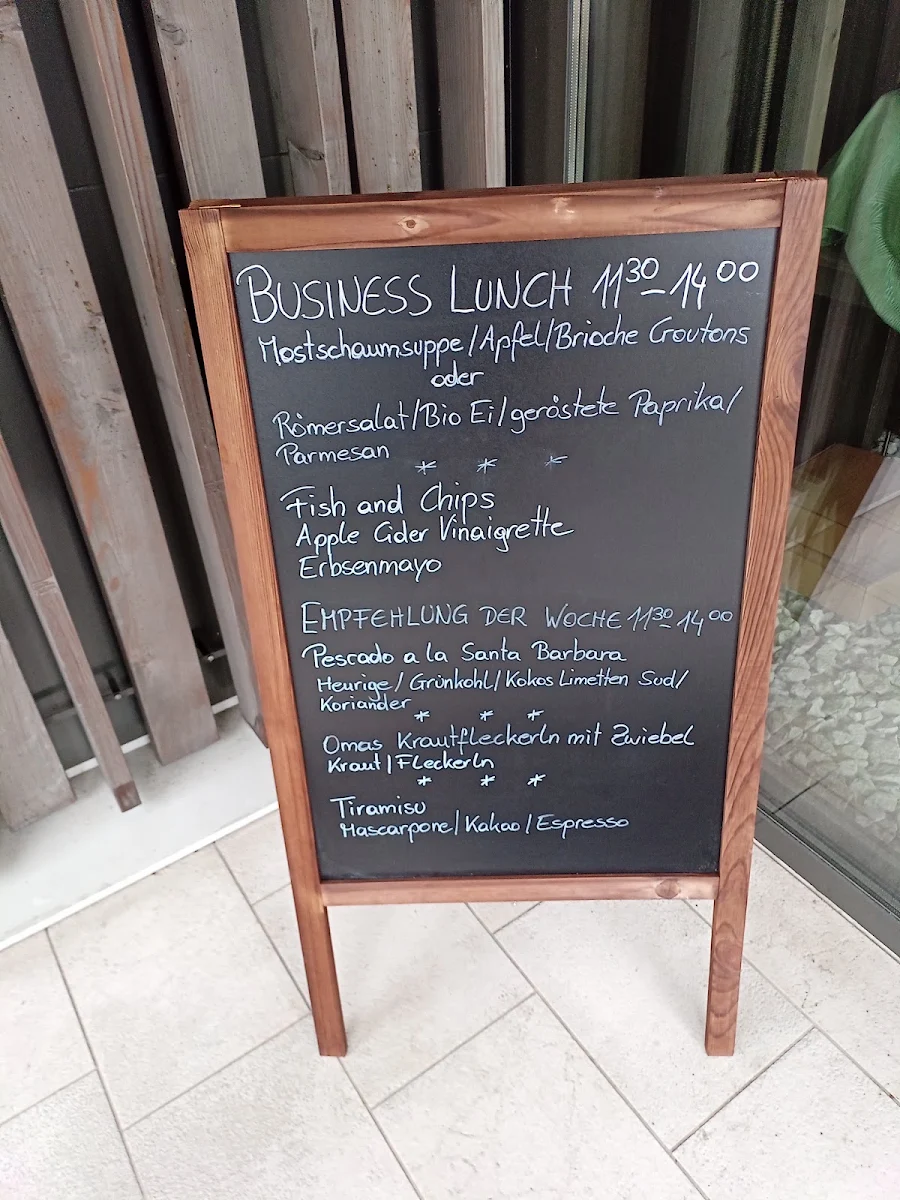 BUSINESS LUNCH 11³⁰-14⁰⁰
Mostschaumsuppe/Apfel/Brioche Croutons
oder
Römersalat/Bio Ei/geröstete Paprika/
Parmesan
* * *
Fish and Chips
Apple Cider Vinaigrette
Erbsenmayo
EMPFEHLUNG DER WOCHE 11³⁰-14⁰⁰
Pescado a la Santa Barbara
Heurige/Grünkohl/Kokos Limetten Sud/
Koriander
* * *
Omas Krautfleckerln mit Zwiebel
Kraut/Fleckerln
* * *
Tiramisu
Mascarpone/Kakao/Espresso